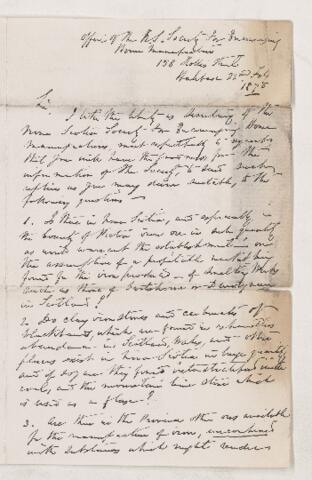 Office of the N.S. Society for Encouraging
Home Manufactures
138 Hollis Street
Halifax 22nd Feby
1878
Sir,
I take the liberty as Secretary of the
Nova Scotia Society for Encouraging Home
Manufactures, most respectfully to request
that you will have the goodness for the
information of the Society, to send such
replies as you may deem suitable, to the
following questions —
1. Is there in Nova Scotia, and especially in
the County of Pictou iron ore in such quantity
as would warrant the establishment, on
the assumption of a profitable market being
found for the iron produced — of smelting Works
such as those of Gartsherrie or
in Scotland?
2. Do clay ironstones and carbonates of
blackbands, which are found in exhaustless
abundance in Scotland, Wales, and other
places exist in Nova Scotia in large quantity
and if so, are they found interstratified with
coal, and the mountain lime stone which
is used as a flux?
3. Are there in the Province other ores available
for the manufacture of iron, uncombined
with substances which might render